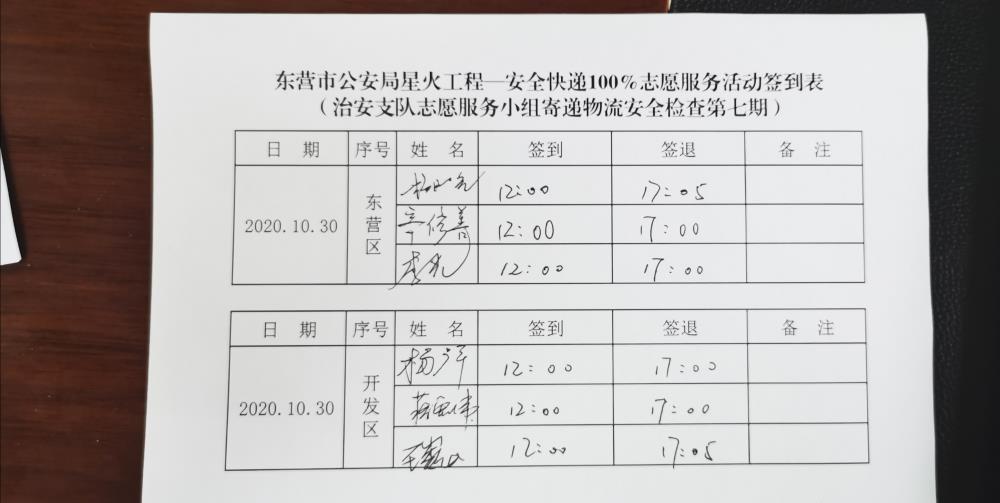 东营市公安局星火工程—安全快递100%志愿服务活动签到表
（治安支队志愿服务小组寄递物流安全检查第七期）
日 期 序号 姓 名 签到 签退 备 注
2020.10.30 东营区
12:00 17:05
12:00 17:00
12:00 17:00
日 期 序号 姓 名 签到 签退 备 注
2020.10.30 开发区
杨洋 12:00 17:00
12:00 17:00
12:00 17:05